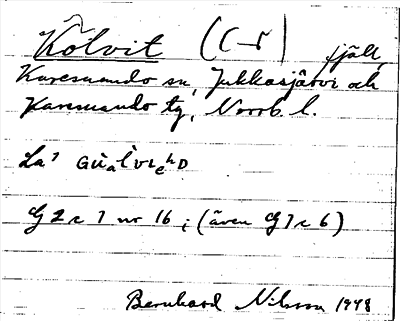 Kölvit (C-5) fjäll,
Karesuando sn, Jukkasjärvi och
Karesuando tg, Norrb. l.
La'
G 2 c 7 nr 16; (även G 7 c 6)
Bernhard Nilsson 1948